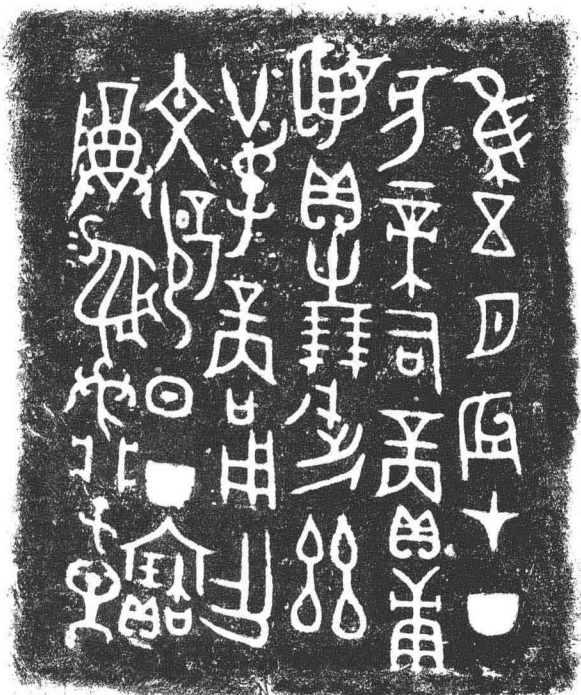 隹五月辰才丁
亥帝司賞庚
姬貝卅朋絲
廿寽商用乍
文辟日丁寶
尊彝